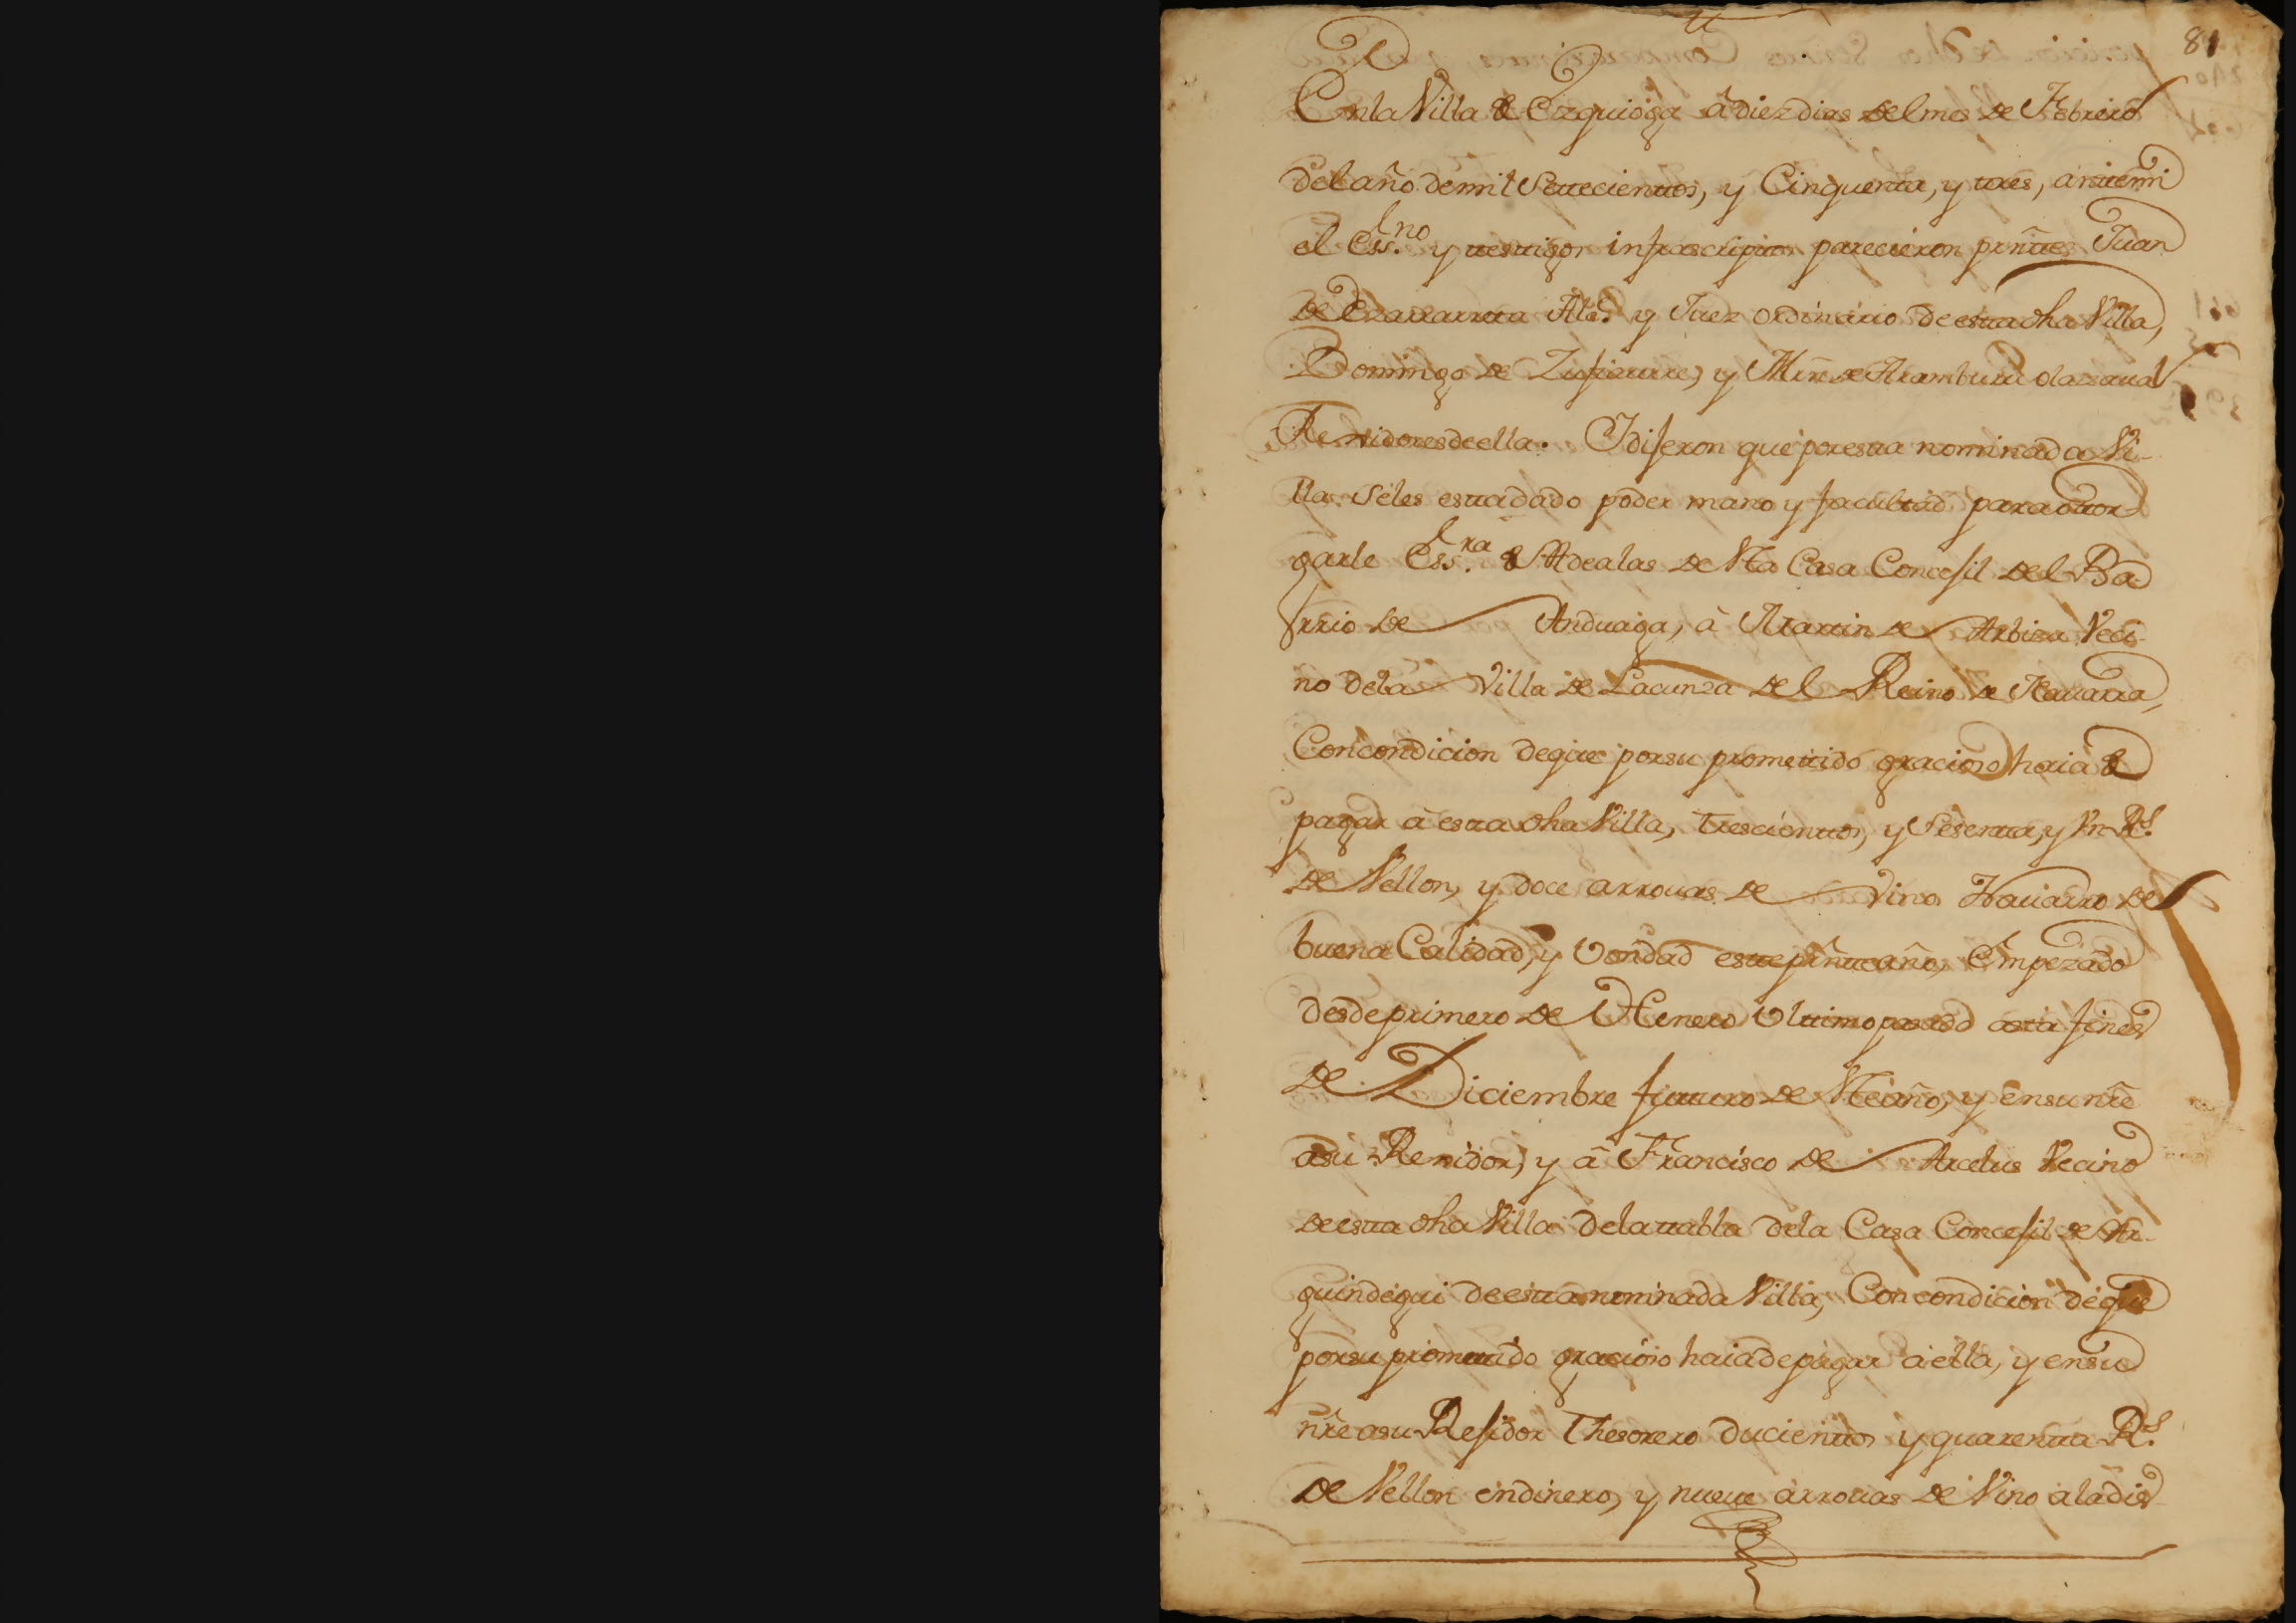 81
En la Villa de Ezquioga â diez dias del mes de Febrero
del año de mil Settecienttos, y Cinquentta, y ttres, antte mi
el Ess.no y ttesttigos infrascripttos parecieron prñttes Juan
de Ezavarrtta Alc.e y Juez ordinario de estta dha Villa,
Domingo de Zufiaurre, y Mrñ de Aramburu olazaual
Rexidores de ella. I dijeron que por estta nominada Vi-
lla Se les estta dado poder mano y facultad para ottor
garle Ess.ra de Adealas de Vtta Casa Concejil del Ba
rrio de Anduaga, â Martin de Arbiza Veci-
no de la Villa de Lacunza del Reino de Nauarra,
Con condicion de que por su promettido gracioso haia de
pagar â estta dha Villa, trescienttos, y Sesentta, y Vn R.s
de Vellon, y doce arrouas de Vino Nauarro de
buena Calidad, y Vondad estte prñtte año, Empezado
desde primero de Henero Vlttimo pasado astta fines
de Diciembre futturo de Vtte año, y en su nr̃e
a su Rexidor, y â Francisco de Arcelus Vecino
de estta dha Villa de la ttabla de la Casa Concejil de Ar-
guindegui de estta nominada Villa, Con condicion de que
por su promettido gracioso haia de pagar â ella, y en su
nr̃e a su Rejidor Thesorero ducienttos y quarentta R.s
de Vellon en dinero, y nueve arrouas de Vino a la dis